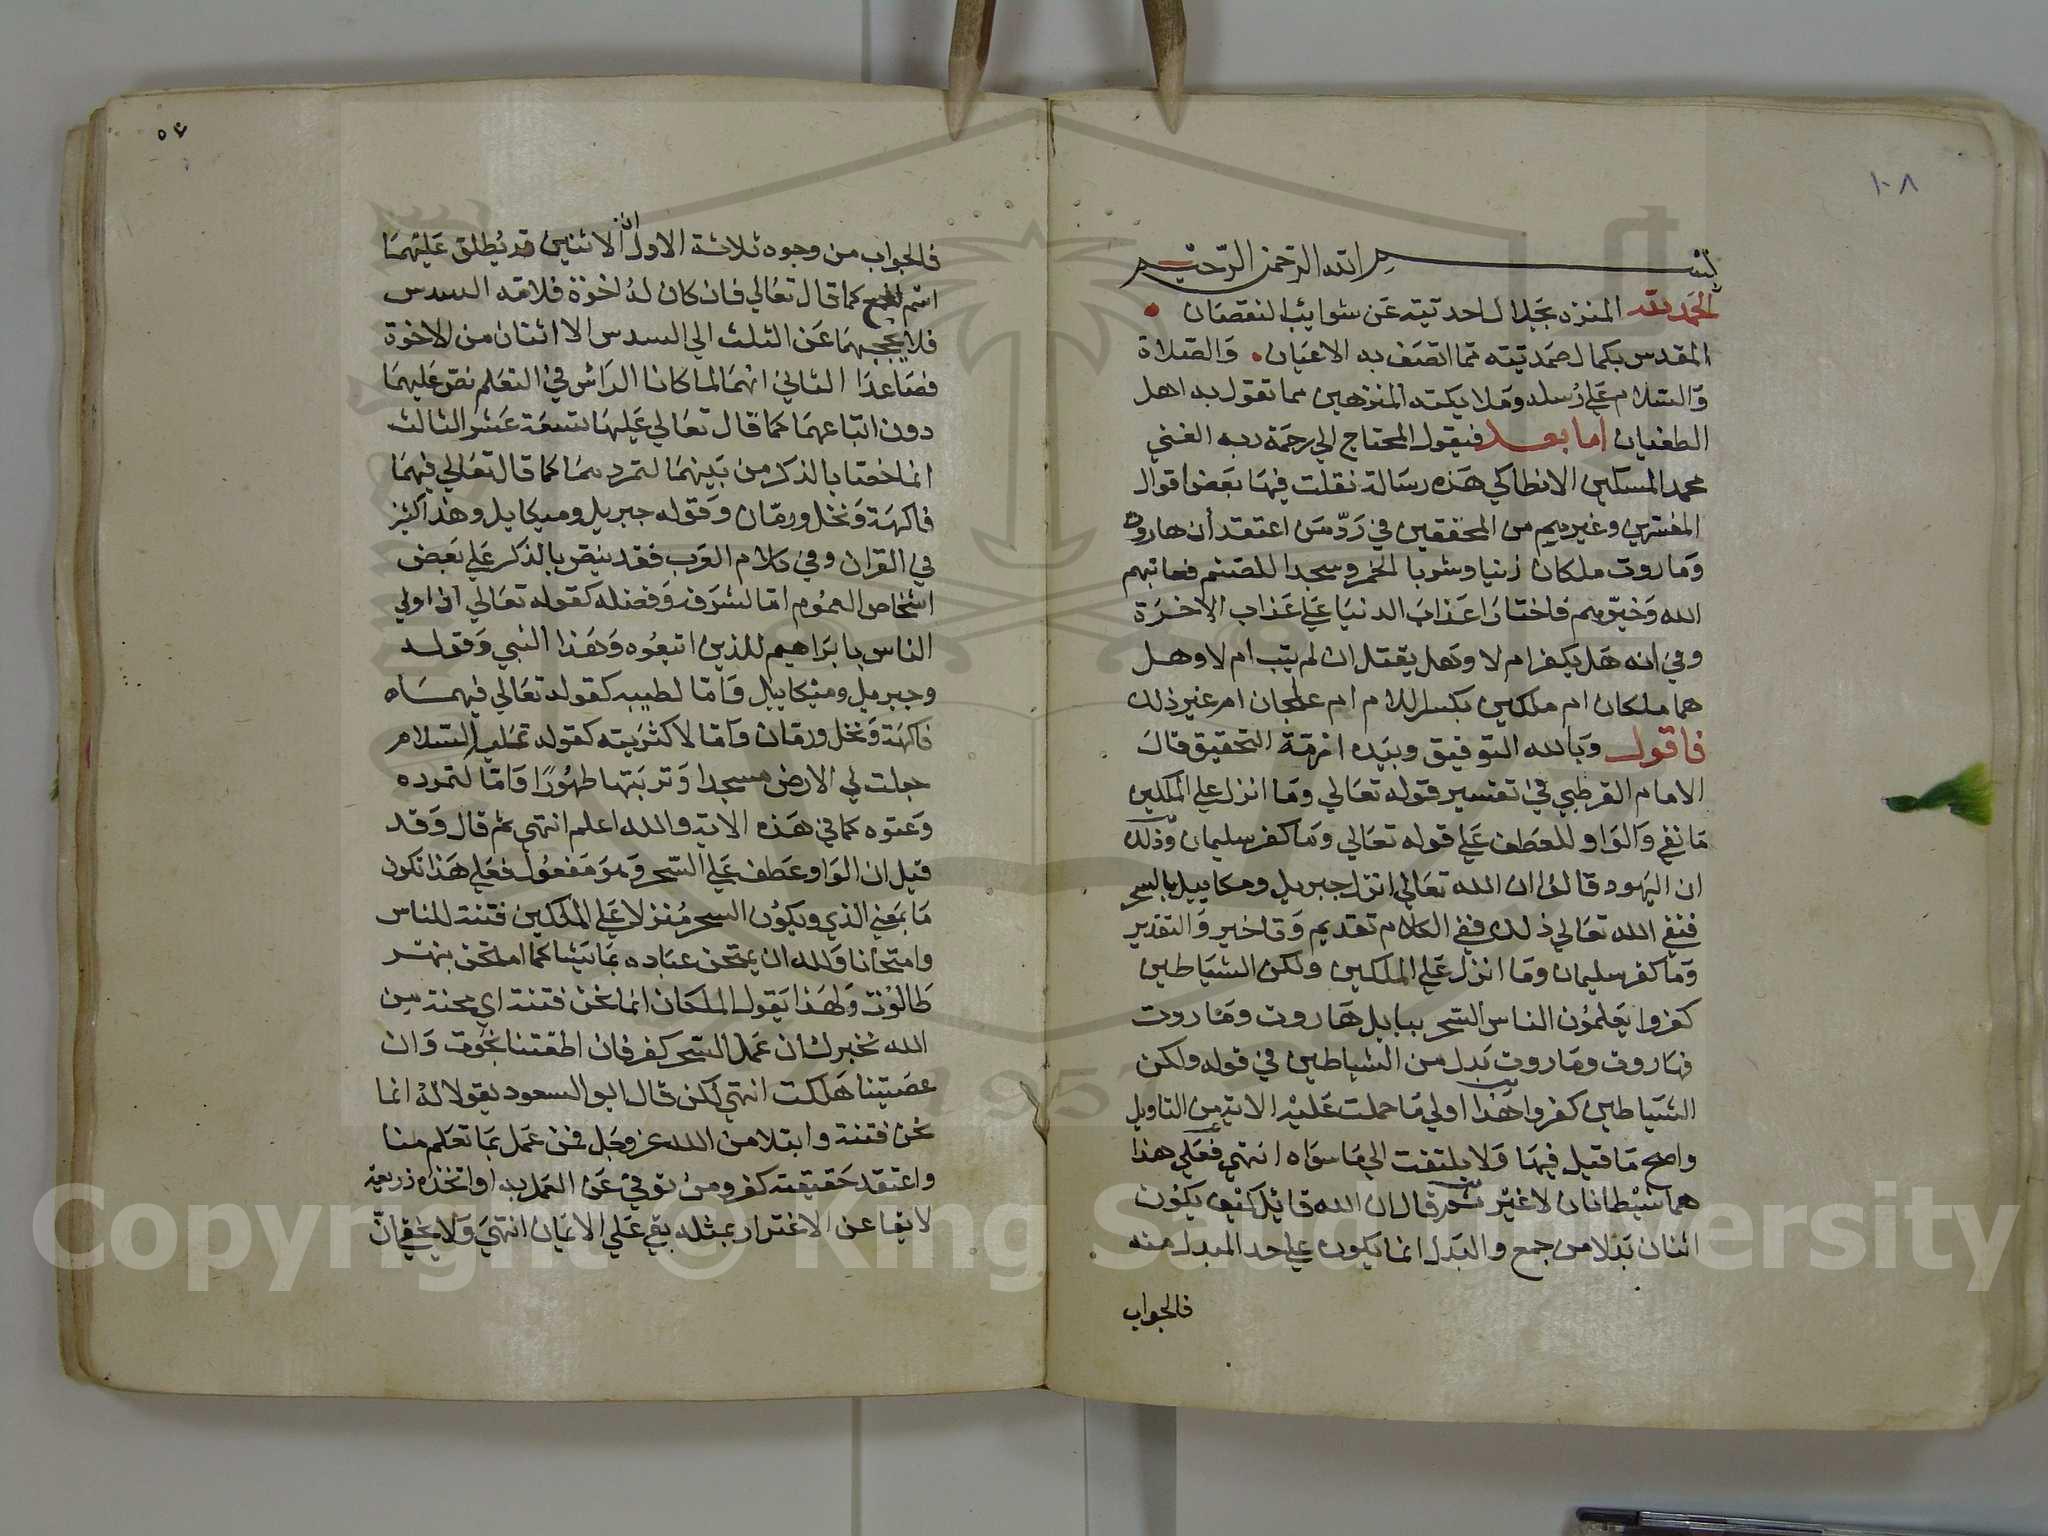 ١٠٨
بسم الله الرحمن الرحيم
الحمد لله المنزه بجلال احديته عن شوايب النقصان
المقدس بكمال صمديته مما اتصف به الاعيان والصلاة
والسلام على رسله وملايكته المنزهين مما تقول به اهل
الطغيان اما بعد فيقول المحتاج الي رحمة ربه الغني
محمد المسكين الانطاكي هذه رسالة نقلت فيها بعض اقوال
المفسرين وغيرهم من المحققين في رد من اعتقد أن هاروت
وماروت ملكان زنيا وشربا الخمر وسجدا للصنم فعاتبهم
الله وخيرهم فاختارا عذاب الدنيا علي عذاب الاخرة
وفي انه هل يكفر ام لا وهل يقتل ان لم يتب ام لا وهل
هما ملكان ام ملكين بكسر اللام ام علجان ام غير ذلك
فاقول وبالله التوفيق وبيده ازمة التحقيق قال
الامام القرطبي في تفسير قوله تعالي وما انزل علي الملكين
ما نفي والواو للعطف علي قوله تعالي وما كفر سليمان وذلك
ان اليهود قالوا ان الله تعالي انزل جبريل وميكاييل بالسحر
فنفي الله تعالي ذلك ففي الكلام تقديم وتاخير والتقدير
وما كفر سليمان وما انزل علي الملكين ولكن الشياطين
كفروا يعلمون الناس السحر ببابل هاروت وماروت
فهاروت وماروت بدل من الشياطين في قوله ولكن
الشياطين كفروا هذا اولي ما حملت عليه الاية من التاويل
واصح ما قيل فيها ولا يلتفت الي ما سواه انتهي فعلي هذا
هما شيطانان لا غير ثم قال ان الله قائل كيف يكون
اثنان بدلا من جمع والبدل انما يكون علي حد المبدل منه
فالجواب
٥٧
فالجواب من وجوه ثلاثة الاول ان الاثنين قد يطلق عليهما
اسم الجمع كما قال تعالي فان كان له اخوة فلامه السدس
فلا يحجبهما عن الثلث الي السدس الا اثنان من الاخوة
فصاعدا الثاني انهما لما كانا الراس في التعلم نص عليهما
دون اتباعهما كما قال تعالي عليها تسعة عشر الثالث
انما خصا بالذكر من بينهما لتمردهما كما قال تعالي فيهما
فاكهة ونخل ورمان وقوله جبريل وميكايل وهذا كثير
في القران وفي كلام العرب فقد ينص بالذكر علي بعض
اشخاص العموم اما لشرفه وفضله كقوله تعالي ان اولي
الناس بابراهيم للذين اتبعوه وهذا النبي وقوله
وجبريل وميكاييل واما لطيبه كقوله تعالي فيهما
فاكهة ونخل ورمان واما لاكثريته كقوله عليه السلام
جعلت لي الارض مسجدا وتربتها طهورًا واما لتمرده
وعتوه كما في هذه الاية والله اعلم انتهي ثم قال وقد
قيل ان الواو عطف علي السحر وهو مفعول فعلي هذا تكون
ما بمعني الذي ويكون السحر منزلا علي الملكين فتنة للناس
وامتحانا ولله ان يمتحن عباده بما يشا كما امتحن بنهر
طالوت ولهذا يقول الملكان انما نحن فتنة اي محنة من
الله نخبرك ان عمل السحر كفر فان اطعتنا نجوت وان
عصيتنا هلكت انتهي لكن قال ابو السعود يقولا له انما
نحن فتنة وابتلا من الله عز وجل فمن عمل بما تعلم منا
واعتقد حقيقته كفر ومن توقي عن العمل به او اتخذه ذريعة
لاتقا عن الاغترار بمثله بقي علي الايمان انتهي ولا يخفي ان
Copyright © King Saud University
1957